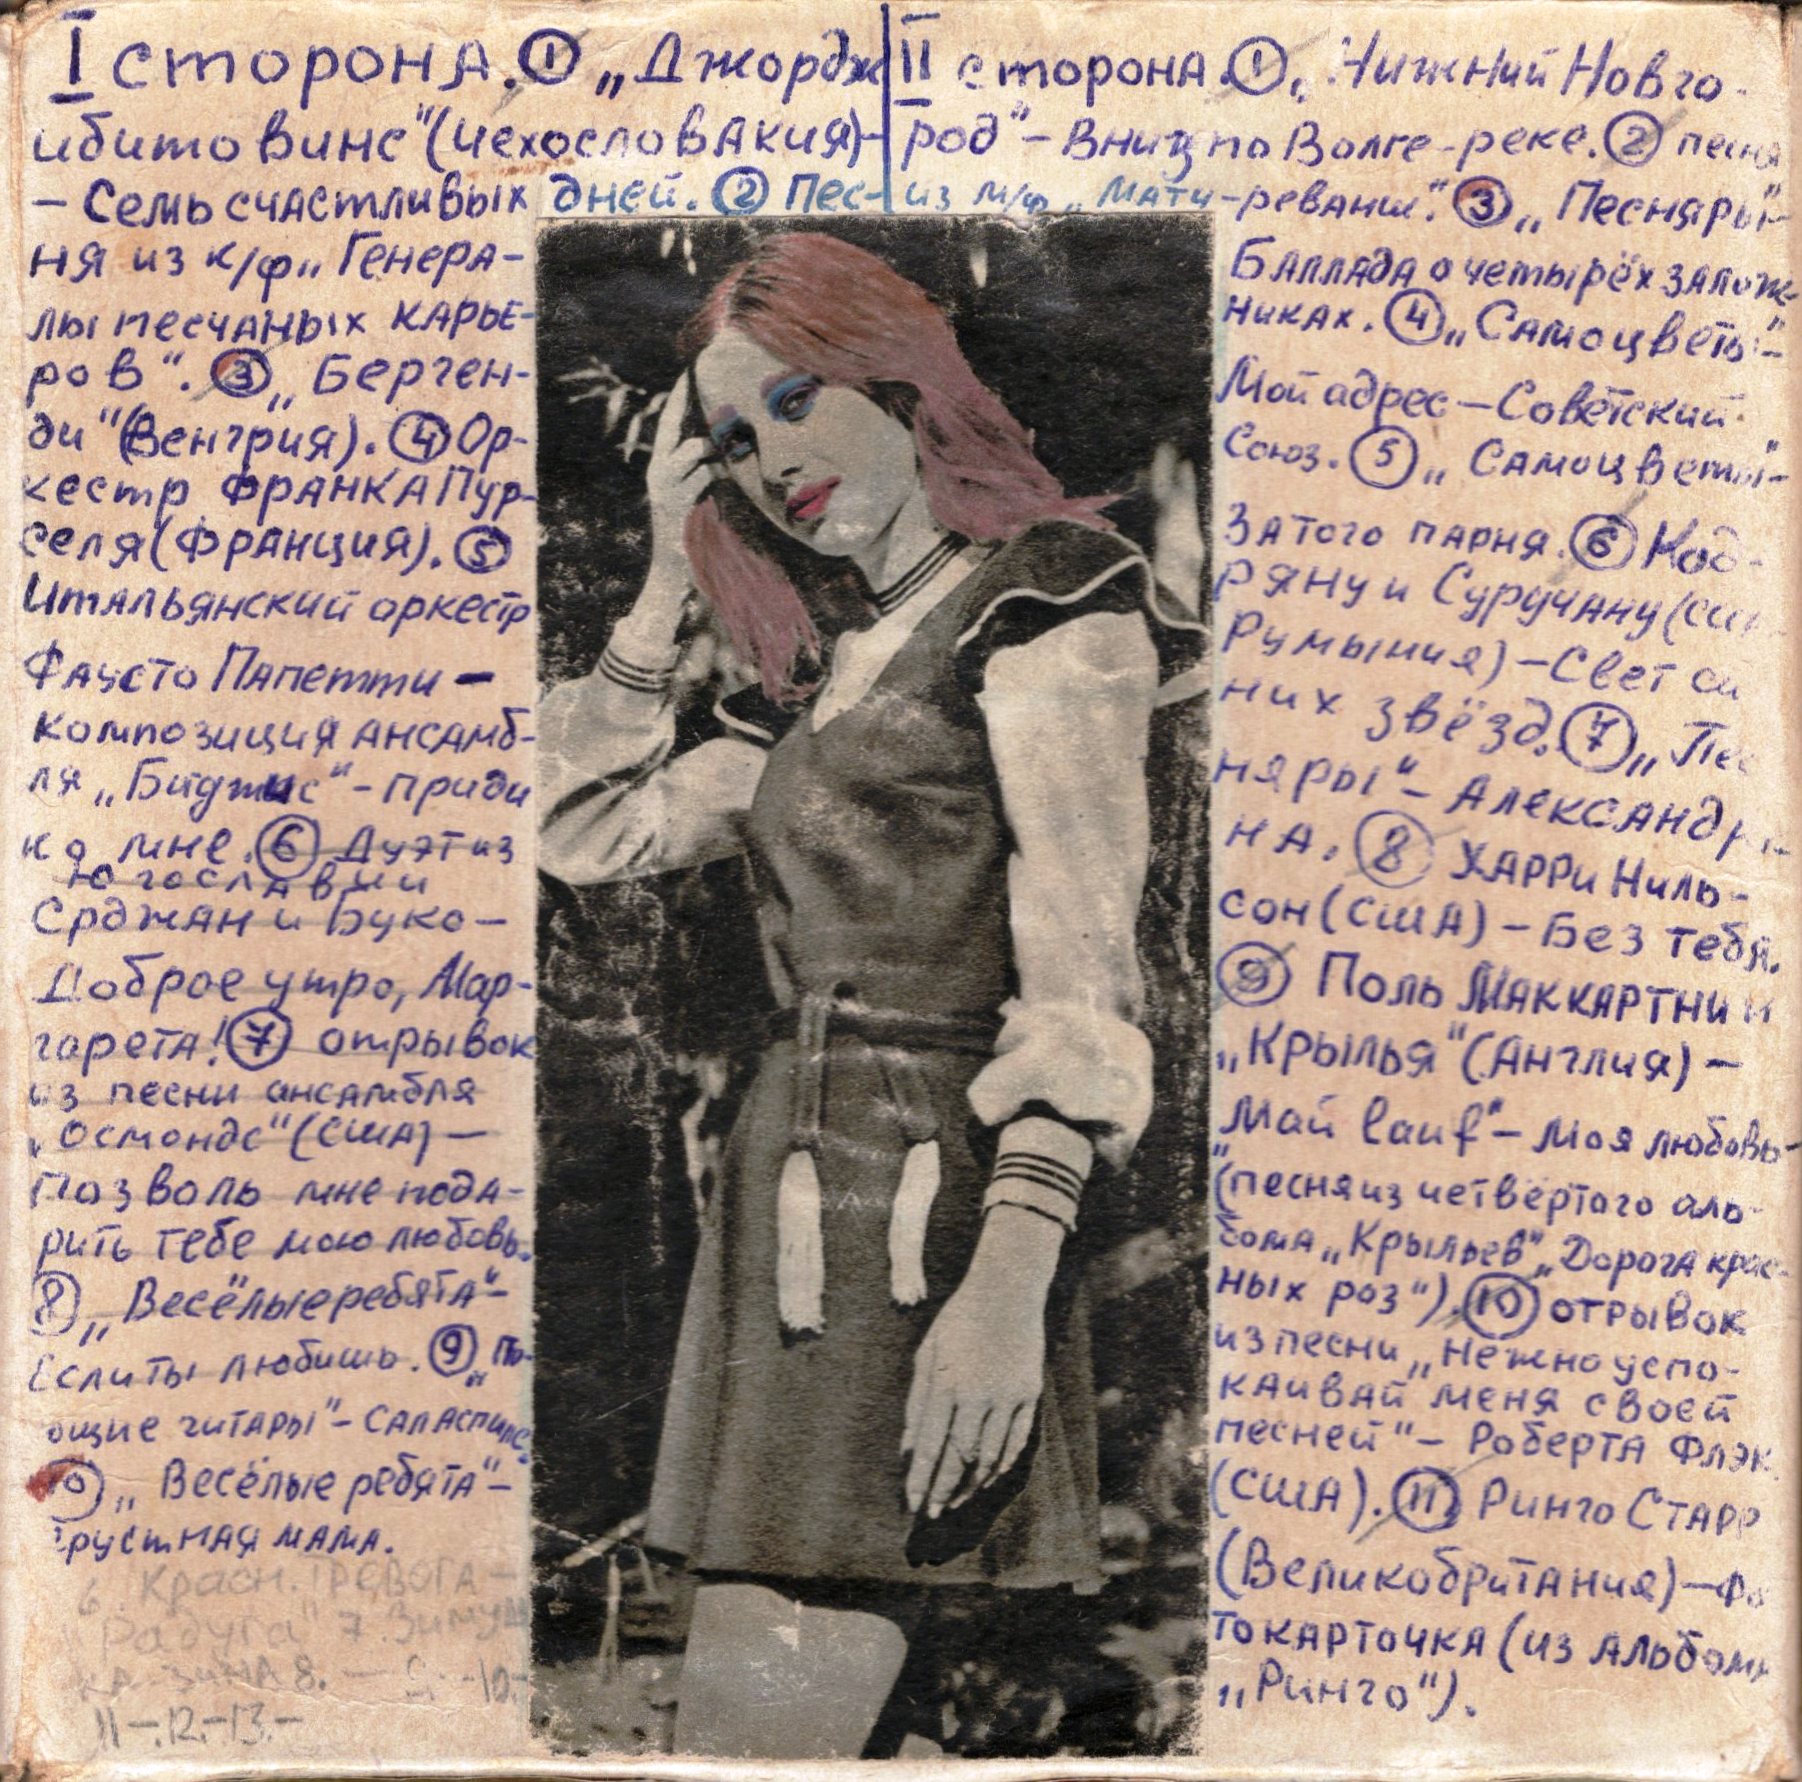 I сторона. ① „Джордж
ибитовинс" (Чехословакия)-
- Семь счастливых дней. ② Пес-
ня из к/ф „Генера-
лы песчаных карье-
ров". ③ „Берген-
ди" (Венгрия). ④ Ор-
кестр Франка Пур-
селя (Франция). ⑤
Итальянский оркестр
Фаусто Папетти -
композиция ансамб-
ля „Биджис" - приди
ко мне. ⑥ Дуэт из
Югославии
Срджан и Буко -
Доброе утро, Мар-
гарета! ⑦ отрывок
из песни ансамбля
„Осмондс" (США) -
Позволь мне пода-
рить тебе мою любовь.
⑧ „Весёлые ребята" -
Если ты любишь. ⑨ „По-
ющие гитары" - Саласпилс.
⑩ „Весёлые ребята" -
грустная мама.
6. Красн. тревога -
„Радуга" 7. Зимуш
ка-зима 8. - 9. -10.-
11-.12.-13.-
II сторона. ① „Нижний Новго-
род" - Вниз по Волге-реке. ② песня
из м/ф „Матч-реванш". ③ „Песняры" -
Баллада о четырёх залож-
никах. ④ „Самоцветы" -
Мой адрес - Советский
Союз. ⑤ „Самоцветы" -
За того парня. ⑥ Код-
ряну и Суручану
Румыния) - Свет си
них звёзд. ⑦ „Пес
няры" - Александри
на. ⑧ Харри Ниль-
сон (США) - Без тебя.
⑨ Поль Маккартни и
„Крылья" (Англия) -
„Май lauf" - Моя любовь -
(песня из четвёртого аль-
бома „Крыльев" „Дорога крас-
ных роз"). ⑩ отрывок
из песни „Нежно успо-
каивай меня своей
песней" - Роберта Флэк
(США). ⑪ Ринго Старр
(Великобритания) - Фо
токарточка (из альбома
„Ринго").